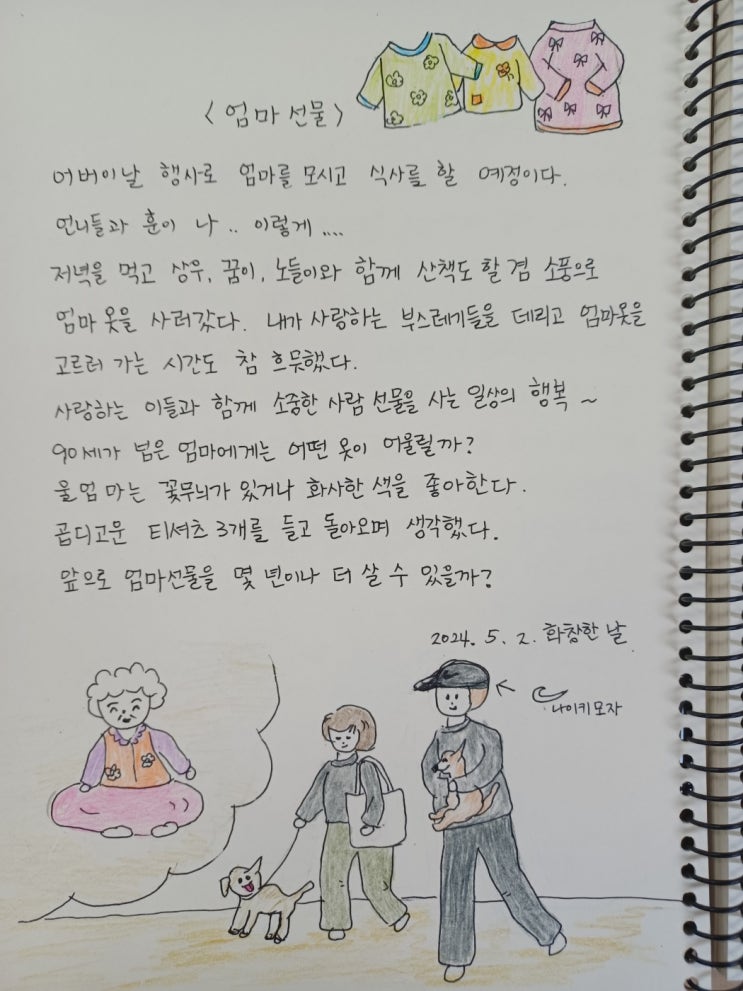 < 엄마 선물 >
어버이날 행사로 엄마를 모시고 식사를 할 예정이다.
언니들과 훈이 나 .. 이렇게 ....
저녁을 먹고 상우, 꿈이, 노들이와 함께 산책도 할 겸 소풍으로
엄마 옷을 사러갔다. 내가 사랑하는 부스레기들을 데리고 엄마옷을
고르러 가는 시간도 참 흐뭇했다.
사랑하는 이들과 함께 소중한 사람 선물을 사는 일상의 행복 ~
90세가 넘은 엄마에게는 어떤 옷이 어울릴까?
울엄마는 꽃무늬가 있거나 화사한 색을 좋아한다.
곱디고운 티셔츠 3개를 들고 돌아오며 생각했다.
앞으로 엄마선물을 몇 년이나 더 살 수 있을까?
2024. 5. 2. 화창한 날
나이키모자